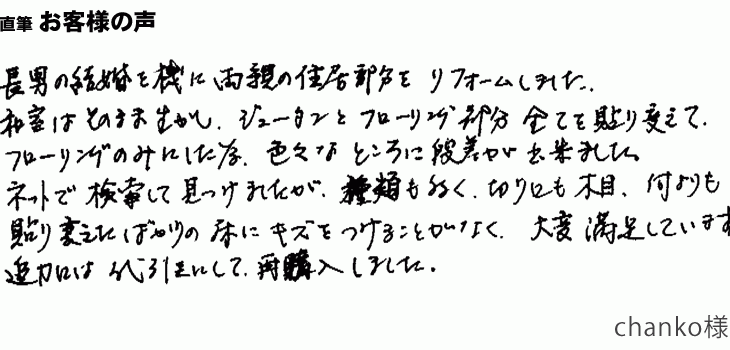 直筆 お客様の声
長男の結婚を機に両親の住居部分をリフォームしました.
和室はそのまま生かし、ジュータンとフローリング部分全てを貼り変えて、
フローリングのみにした為、色々なところに段差が出来ました。
ネットで検索して見つけましたが、種類も多く、切り口も木目、何よりも
貼り変えたばかりの床にキズをつけることがなく、大変満足しています
追加は代引きにして、再購入しました。
chanko様